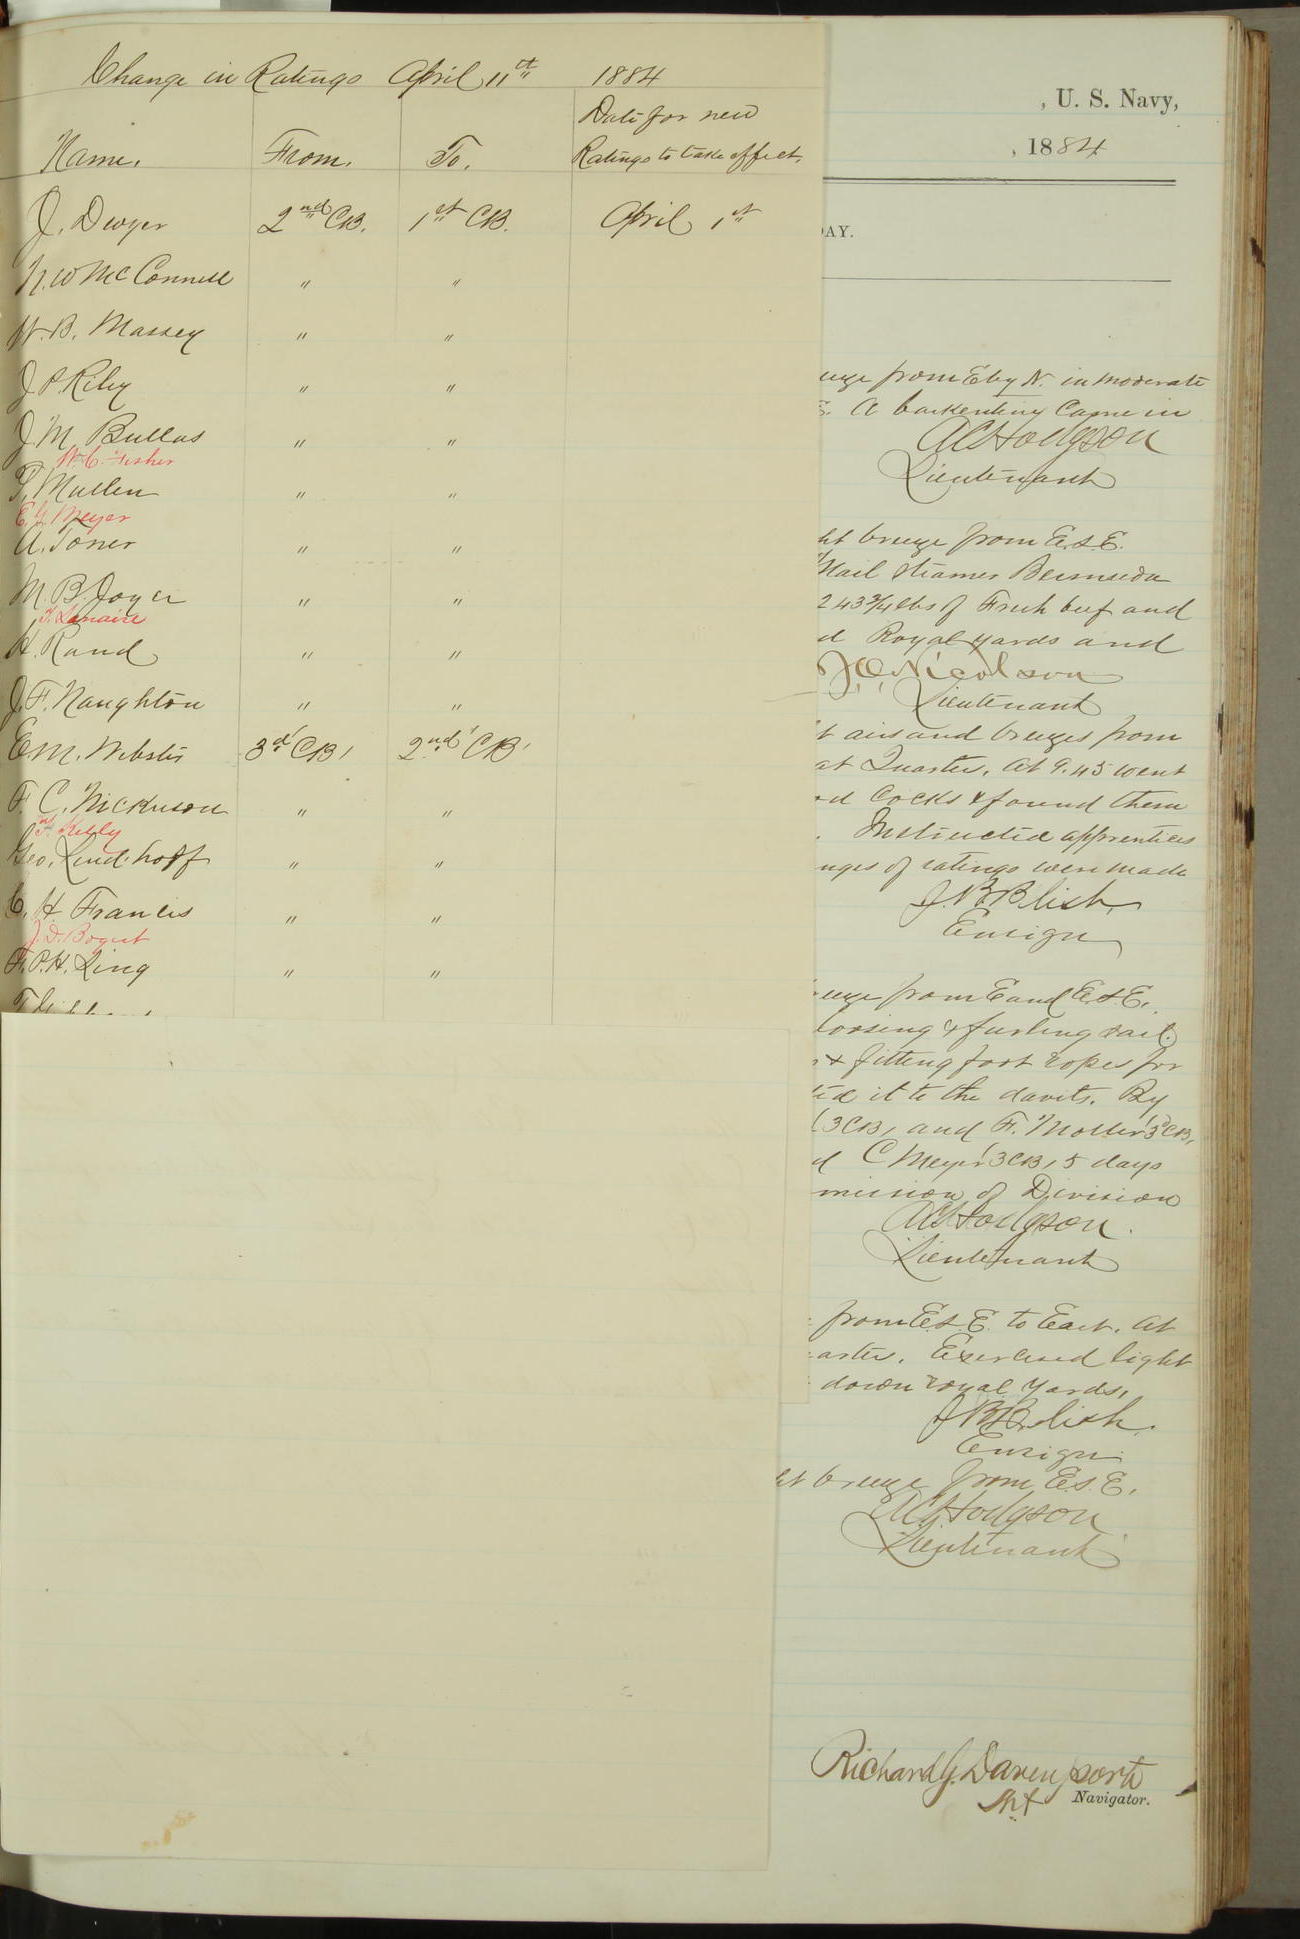 Change in Ratings April 11th 1884
Name. From. To. Date for new
Ratings to take effect.
J. Dwyer 2nd CB. 1st CB. April 1st
N. W McConnell " "
W. B. Massey " "
J P. Riley " "
J. M. Bullas " "
W. C. Fisher
P. Mullen " "
E. G. Meyer
A. Toner " "
M. B. Joyer " "
H. Rand " "
J. F. Naughton " "
E. M. Webster 3d CB, 2nd CB,
F. C. Nickerson " "
Kelly
Geo. Lindhoff " "
C. H Francis " "
J. D. Bogert
F. P. H. King " "
, U. S. Navy,
, 1884
AY.
from E by N. in moderate
A barkentine came in
A C Hodgson
Lieutenant
ht breeze from E.S.E.
Mail steamer Bermuda
243 3/4 lbs of Fresh beef and
Royal yards and
J. O. Nicolson
Lieutenant
t airs and breezes from
at Quarters. At 9.45 went
cocks & found them
. Instructed apprentices
nges of ratings were made
J. B. Blish,
Ensign
from E and E.S.E.
loosing & furling sail.
& fitting foot ropes for
it to the davits. By
(3CB, and F. Moller 3dCB,
d C Meyer (3CB, 5 days
mission of Division
A C Hodgson.
Lieutenant
from E.S.E. to East. At
arters. Exercised light
down royal yards,
J B Blish.
Ensign.
ht breeze from E.S.E.
A C Hodgson
Lieutenant
Richard G. Davenport
Lt Navigator.